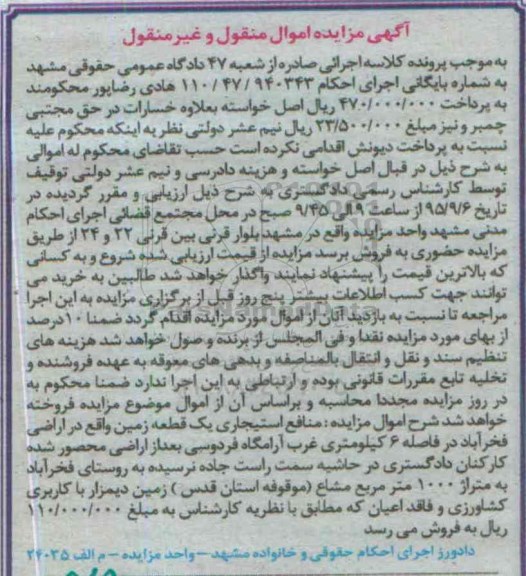 آگهی مزایده اموال منقول و غیر منقول
به موجب پرونده کلاسه اجرائی صادره از شعبه ۴۷ دادگاه عمومی حقوقی مشهد
به شماره بایگانی اجرای احکام ۹۴۰۳۴۳ / ۴۷ / ۱۱۰ هادی رضاپور محکومند
به پرداخت ۴۷۰/۰۰۰/۰۰۰ ریال اصل خواسته بعلاوه خسارات در حق مجتبی
چمبر و نیز مبلغ ۲۳/۵۰۰/۰۰۰ ریال نیم عشر دولتی نظر به اینکه محکوم علیه
نسبت به پرداخت دیونش اقدامی نکرده است حسب تقاضای محکوم له اموالی
به شرح ذیل در قبال اصل خواسته و هزینه دادرسی و نیم عشر دولتی توقیف
توسط کارشناس رسمی دادگستری به شرح ذیل ارزیابی و مقرر گردیده در
تاریخ ۹۵/۹/۶ از ساعت ۹ الی ۹/۴۵ صبح در محل مجتمع قضائی اجرای احکام
مدنی مشهد واحد مزایده واقع در مشهد بلوار قرنی بین قرنی ۲۲ و ۲۴ از طریق
مزایده حضوری به فروش برسد مزایده از قیمت ارزیابی شده شروع و به کسانی
که بالاترین قیمت را پیشنهاد نمایند واگذار خواهد شد طالبین به خرید می
توانند جهت کسب اطلاعات بیشتر پنج روز قبل از برگزاری مزایده به این اجرا
مراجعه تا نسبت به بازدید آنان از اموال مورد مزایده اقدام گردد ضمنا ۱۰ درصد
از بهای مورد مزایده نقدا و فی المجلس از برنده وصول خواهد شد هزینه های
تنظیم سند و نقل و انتقال بالمناصفه و بدهی های معوقه به عهده فروشنده و
تخلیه تابع مقررات قانونی بوده و ارتباطی به این اجرا ندارد ضمنا محکوم به
در روز مزایده مجددا محاسبه و براساس آن از اموال موضوع مزایده فروخته
خواهد شد شرح اموال مزایده : منافع استیجاری یک قطعه زمین واقع در اراضی
فخرآباد در فاصله ۶ کیلومتری غرب آرامگاه فردوسی بعداز اراضی محصور شده
کارکنان دادگستری در حاشیه سمت راست جاده نرسیده به روستای فخرآباد
به متراژ ۱۰۰۰ متر مربع مشاع (موقوفه استان قدس ) زمین دیمزار با کاربری
کشاورزی و فاقد اعیان که مطابق با نظریه کارشناس به مبلغ ۱۱۰/۰۰۰/۰۰۰
ریال به فروش می رسد
دادورز اجرای احکام حقوقی و خانواده مشهد – واحد مزایده – م الف ۲۴۰۳۵